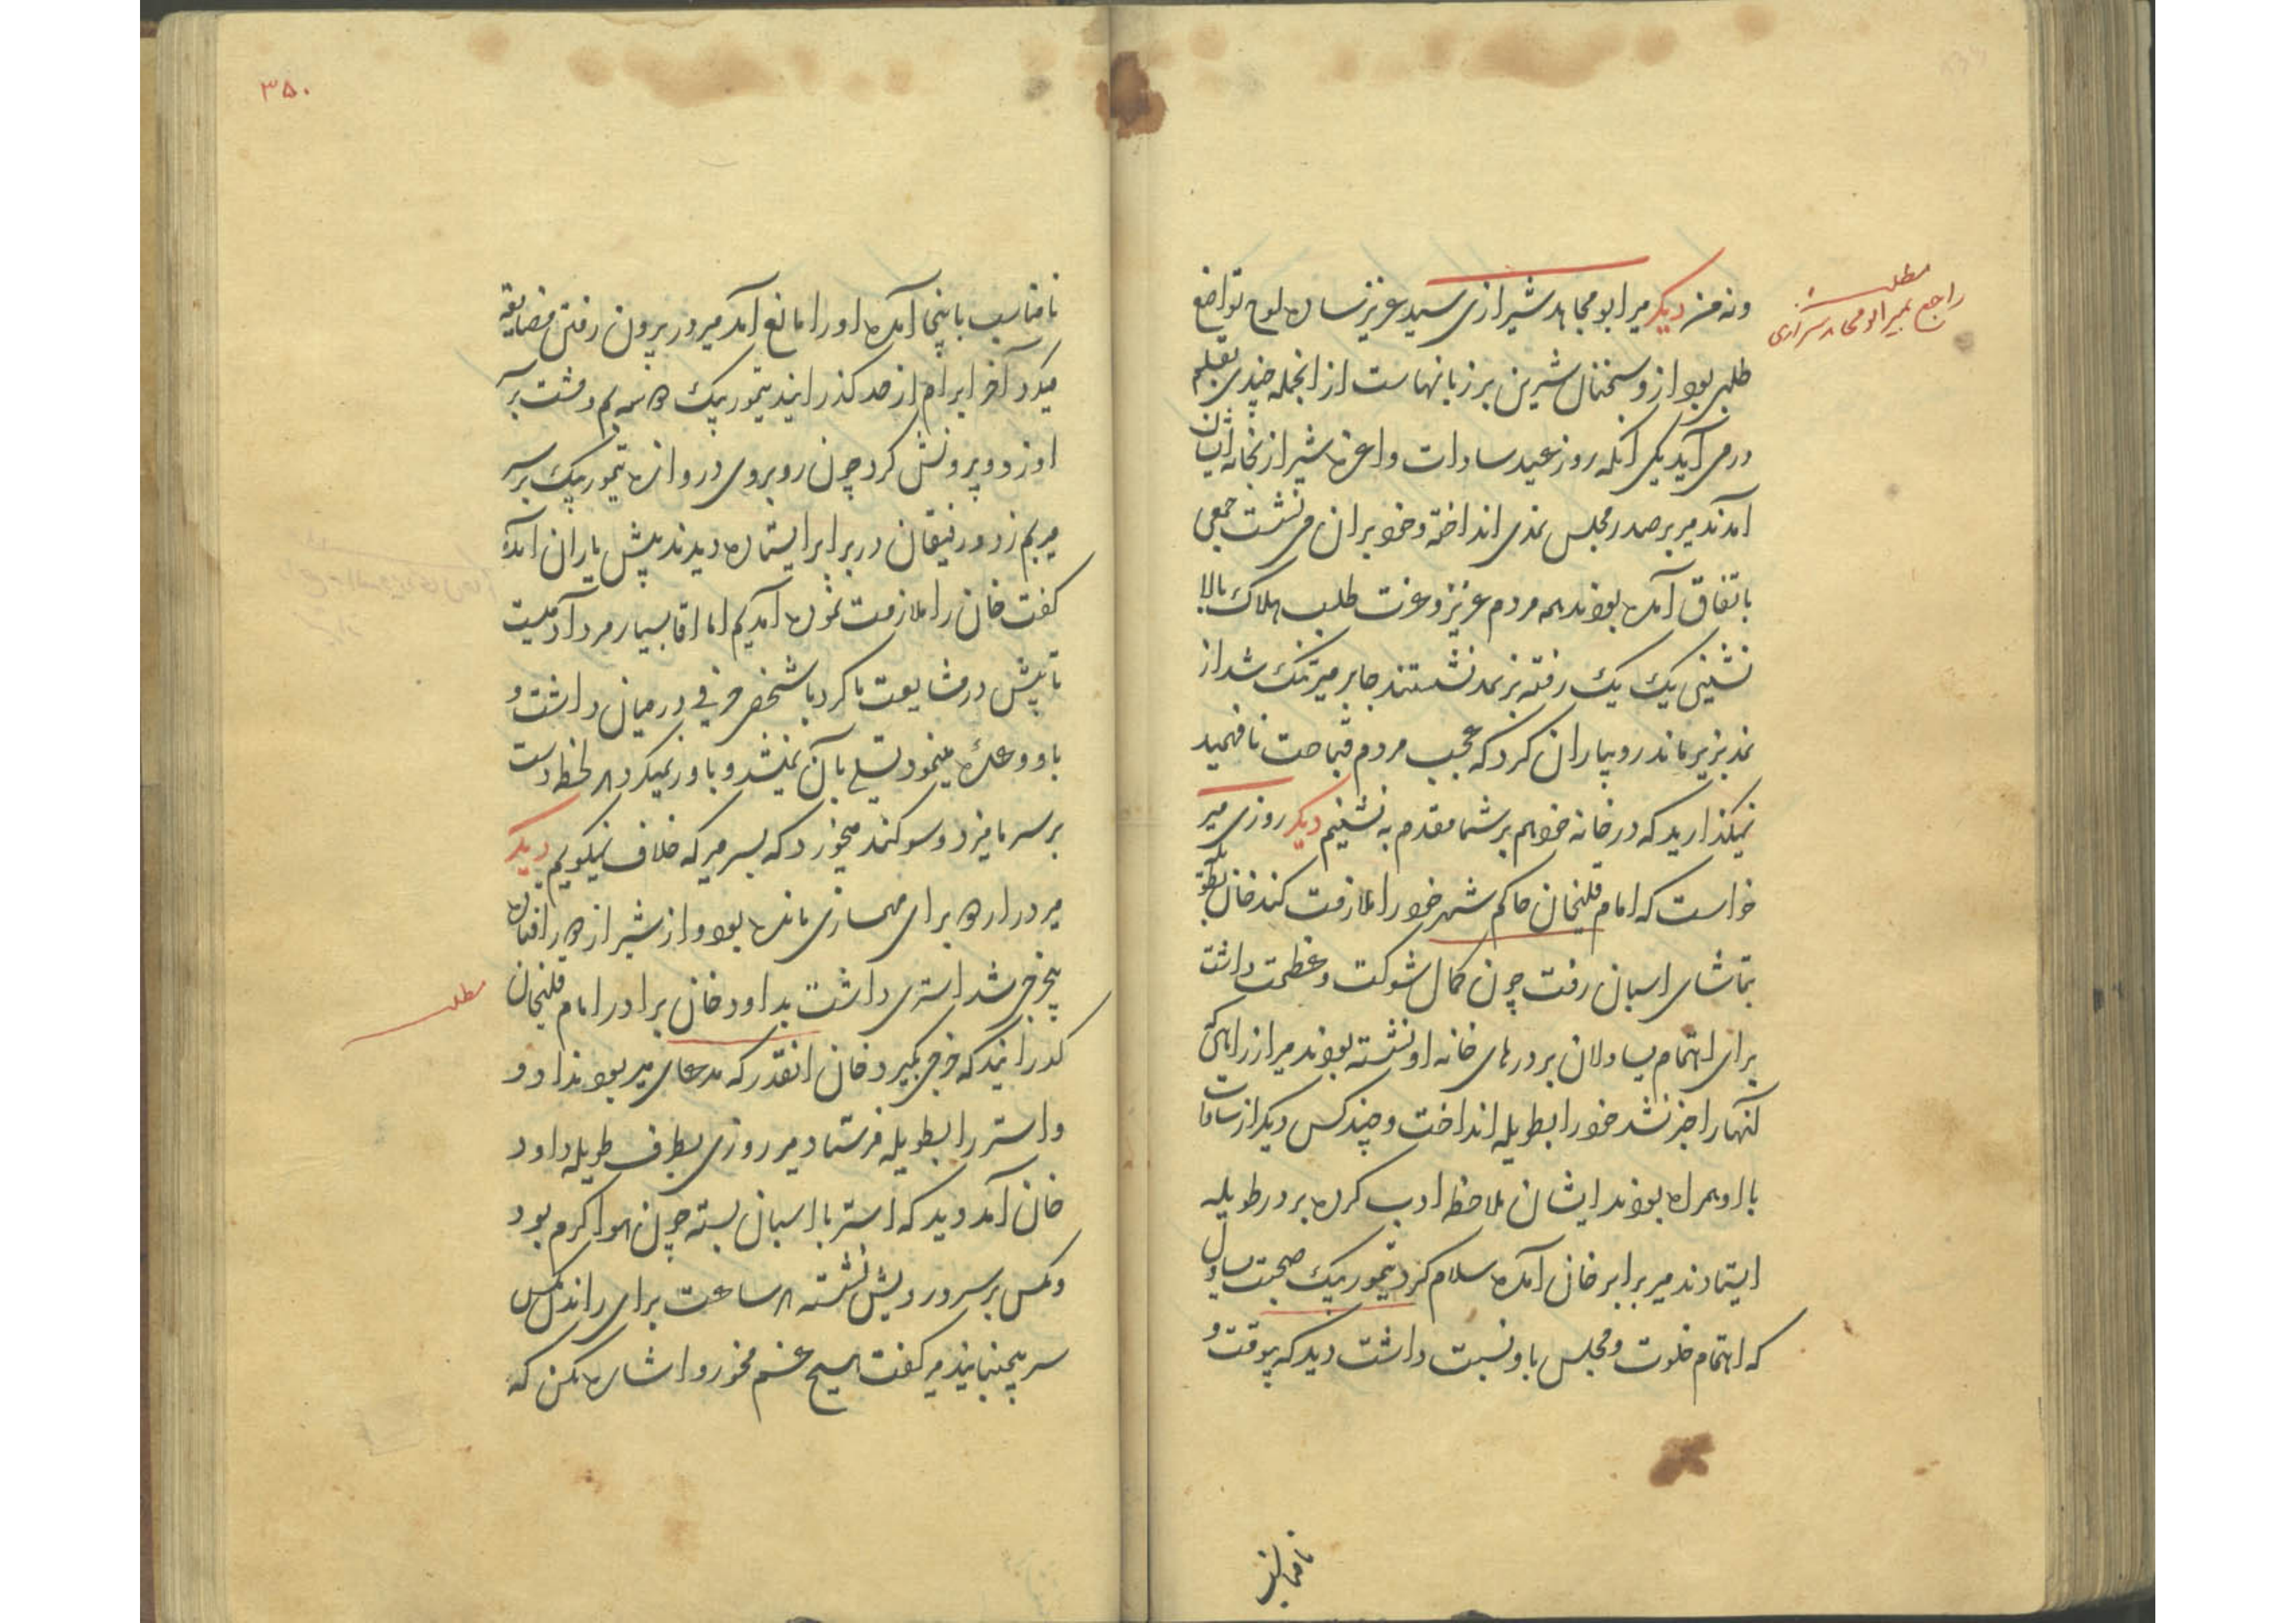 مطلب
راجع بمیر ابو مجاهد شیرازی
ونه من دیکر میر ابو مجاهد شیرازی سید عزیز ساده لوح تواضع
طلبی بود از و سخنان شیرین بر زبانهاست از انجمله چندی بقلم
در می آید یکی آنکه روز عید سادات و اعزه شیراز بخانه ایشان
آمدند میر بر صدر مجلس نمدی انداخته و خود بران می نشست جمعی
باتفاق آمده بودند همه مردم عزیز و عزت طلب هلاک بالا
نشینی یک یک رفته بر نمد نشستند جا بر میر تنک شد از
نمد بزیر ماند رو بیاران کرد که عجب مردم قباحت نافهمید
نمیکذارید که در خانه خود هم بر شما مقدم به نشینم دیکر روزی میر
خواست که امام قلیخان حاکم شهر خود را ملازمت کند خان بطویله
بتماشای اسبان رفت چون کمال شوکت و عظمت داشت
برای اهتمام یساولان بر درهای خانه او نشسته بودند میر از راهی که
آنها را خبر نشد خود را بطویله انداخت و چند کس دیکر از سادات
با او همراه بودند ایشان ملاحظه ادب کرده بر در طویله
ایستادند میر برابر خان آمده سلام کرد تیمور بیک صحبت یساول
که اهتمام خلوت و مجلس باو نسبت داشت دید که بیوقت و
نامناسب
۳۵۰
نامناسب باینجا آمده او را مانع آمد میر در بیرون رفتن مضایقه
میکرد آخر ابرام از حد کذرانید تیمور بیک ده سه بم و مشت بر سر
او زد و بیرونش کرد چون روبروی دروازه تیمور بیک بر سر
میر بم زد و رفیقان در برابر ایستاده دیدند پیش یاران آمده
کفت خان را ملازمت نموده آمدیم اما اقا بسیار مرد آدمیست
تا پیش در مشایعت ما کرد با شخص حرفی در میان داشت و
باو وعده مینمود تسلی بآن نمیشد و باور نمیکرد هر لحظه دست
بر سر ما میزد و سوکند میخورد که بسر میر که خلاف نمیکویم دیکر
میر در اردو برای مهمسازی مانده بود و از شیراز دور افتاده
بیخرجی شد استری داشت بداود خان برادر امام قلیخان
مطلب
کذرانید که خرجی بکیرد خان انقدر که مدعای میر بود نداد و
و استر را بطویله فرستاد میر روزی بطرف طویله داود
خان آمد و دید که استر با اسبان بسته چون هوا کرم بود
و مکس بر سر و رویش نشسته هر ساعت برای راندن مکس
سر میجنبانید میر کفت هیچ غم مخور و اشاره مکن که